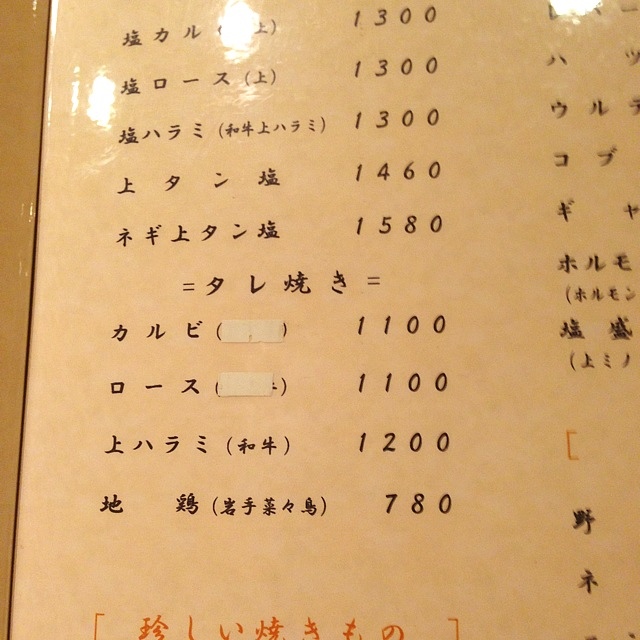 塩カル (上) 1300
塩ロース (上) 1300
塩ハラミ (和牛上ハラミ) 1300
上タン塩 1460
ネギ上タン塩 1580
=タレ焼き=
カルビ ( ) 1100
ロース ( ) 1100
上ハラミ (和牛) 1200
地鶏 (岩手菜々鳥) 780
[珍しい焼きもの]
ハツ
ウルテ
コブ
ギャ
ホルモ
(ホルモン
塩盛
(上ミノ
[
野
ネ